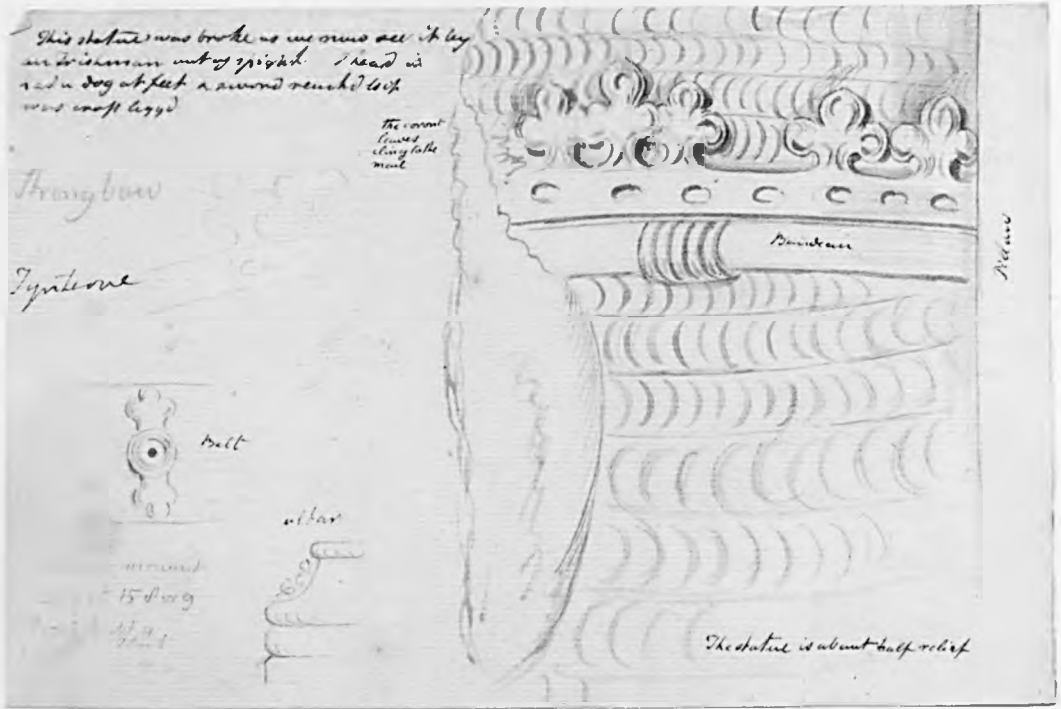 This statue was broke as we now see it by
an Irishman out of spight. I heard it
had a dog at feet & a sword reach'd to it
was crost legg'd
the coront
leaves
cling to the
meal
Strongbow
Tynterne
Bandeau
Belt
altar
The statue is about half relief